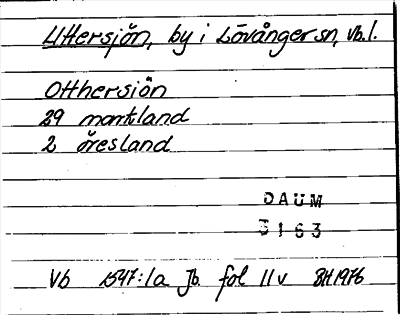 Uttersjön, by i Lövånger sn, Vb. l.
Otthersiön
29 markland
2 öresland
DAUM
3163
Vb 1547:1a Jb. fol 11v BH 1976